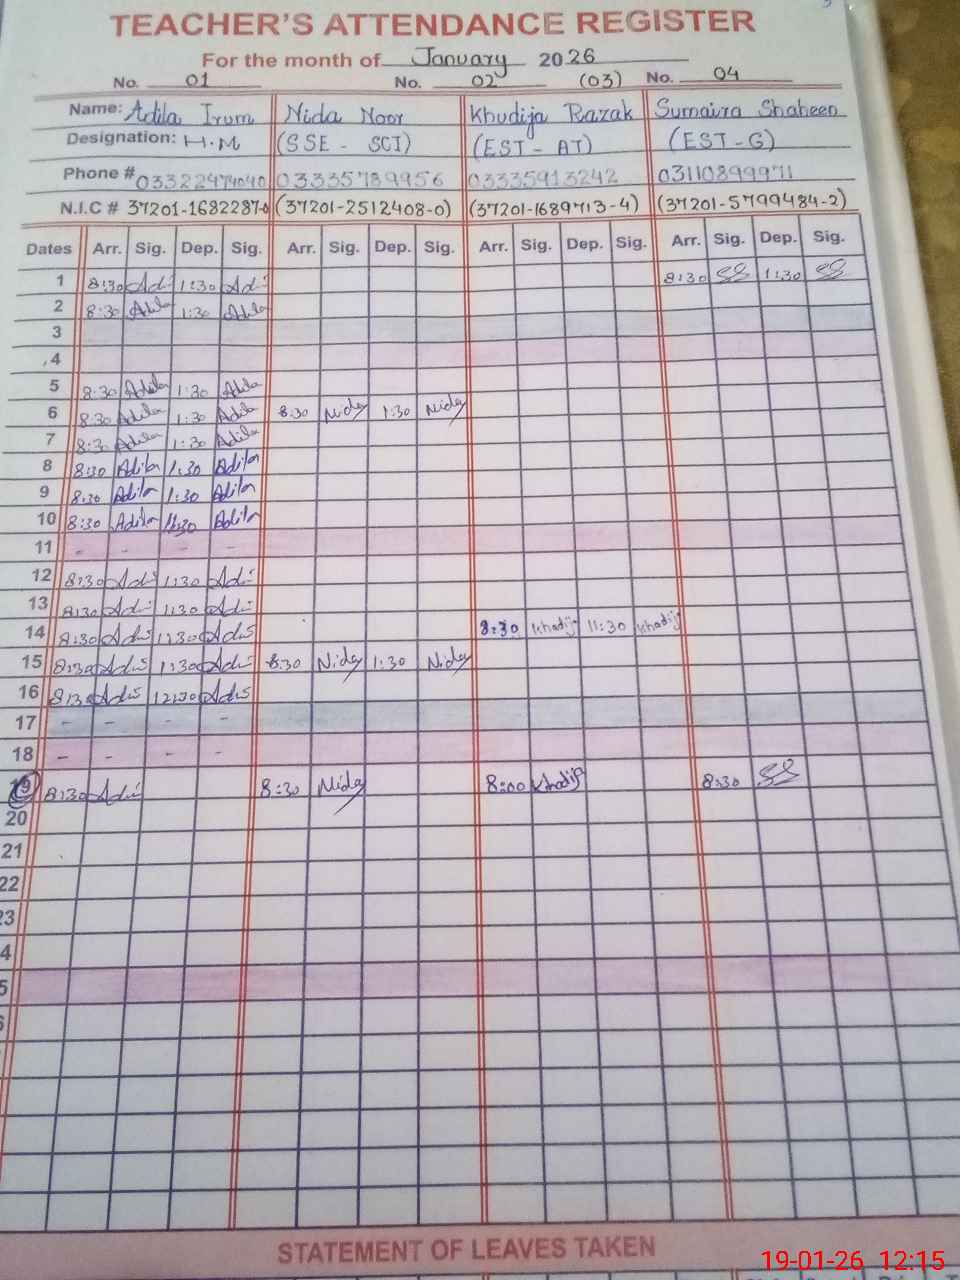 TEACHER'S ATTENDANCE REGISTER
For the month of January 2026
No. 01 No. 02 (03) No. 04
Name: Adila Irum Nida Noor Khudija Razak Sumaira Shaheen
Designation: H.M (SSE - SCI) (EST - AT) (EST - G)
Phone # 03322474040 03335789956 03335913242 03110899971
N.I.C # 37201-1682287-0 (37201-2512408-0) (37201-1689713-4) (37201-5799484-2)
Dates Arr. Sig. Dep. Sig. Arr. Sig. Dep. Sig. Arr. Sig. Dep. Sig. Arr. Sig. Dep. Sig.
1 8:30 Adi 1:30 Adi 8:30 SS 1:30 SS
2 8:30 Adila 1:30 Adila
3
4
5 8:30 Adila 1:30 Adila
6 8:30 Adila 1:30 Adila 8:30 Nida 1:30 Nida
7 8:30 Adila 1:30 Adila
8 8:30 Adila 1:30 Adila
9 8:30 Adila 1:30 Adila
10 8:30 Adila 11:30 Adila
11 - - - -
12 8:30 Adi 1:30 Adi
13 8:30 Adi 1:30 Adi
14 8:30 Adi 1:30 Adi 8:30 Khadij 11:30 Khadij
15 8:30 Adi 1:30 Adi 8:30 Nida 1:30 Nida
16 8:30 Adi 12:30 Adi
17 - - - -
18 - - - -
19 8:30 Adi 8:30 Nida 8:00 Khadij 8:30 SS
20
21
22
23
4
5
STATEMENT OF LEAVES TAKEN
19-01-26 12:15